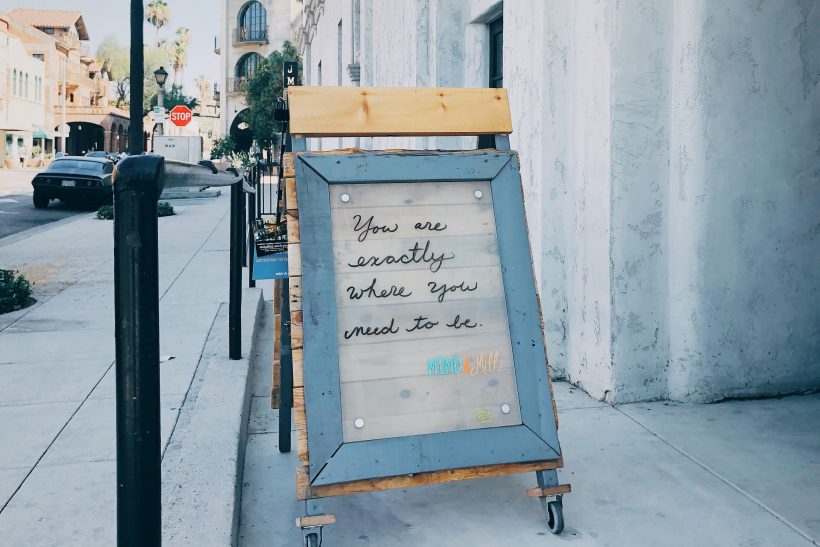 STOP
J
M
You are
exactly
where you
need to be.
MiND & Mill